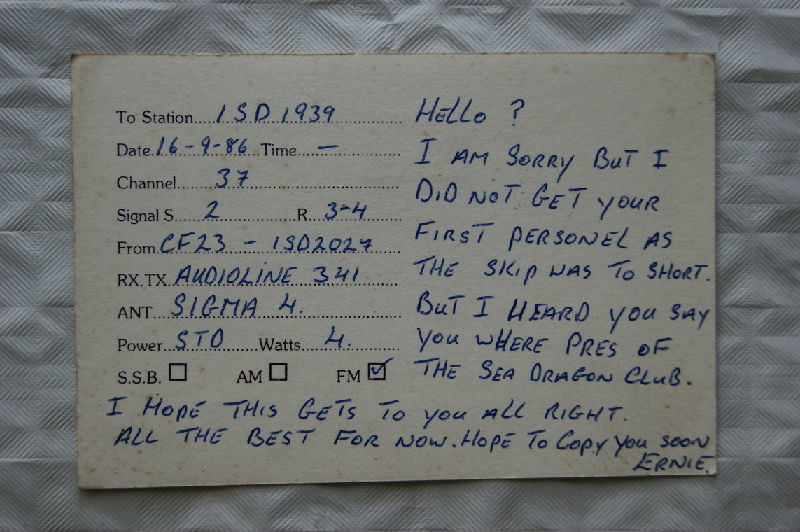 To Station 1SD1939
Date 16-9-86 Time —
Channel 37
Signal S 2 R. 3-4
From CF23 - 1SD2027
RX.TX AUDIOLINE 341
ANT SIGMA 4.
Power STD Watts 4.
S.S.B. ☐ AM ☐ FM ☑
HELLO ?
I AM SORRY BUT I
DID NOT GET YOUR
FIRST PERSONEL AS
THE SKIP WAS TO SHORT.
BUT I HEARD YOU SAY
YOU WHERE PRES OF
THE SEA DRAGON CLUB.
I HOPE THIS GETS TO YOU ALL RIGHT.
ALL THE BEST FOR NOW. HOPE TO COPY YOU SOON
ERNIE.